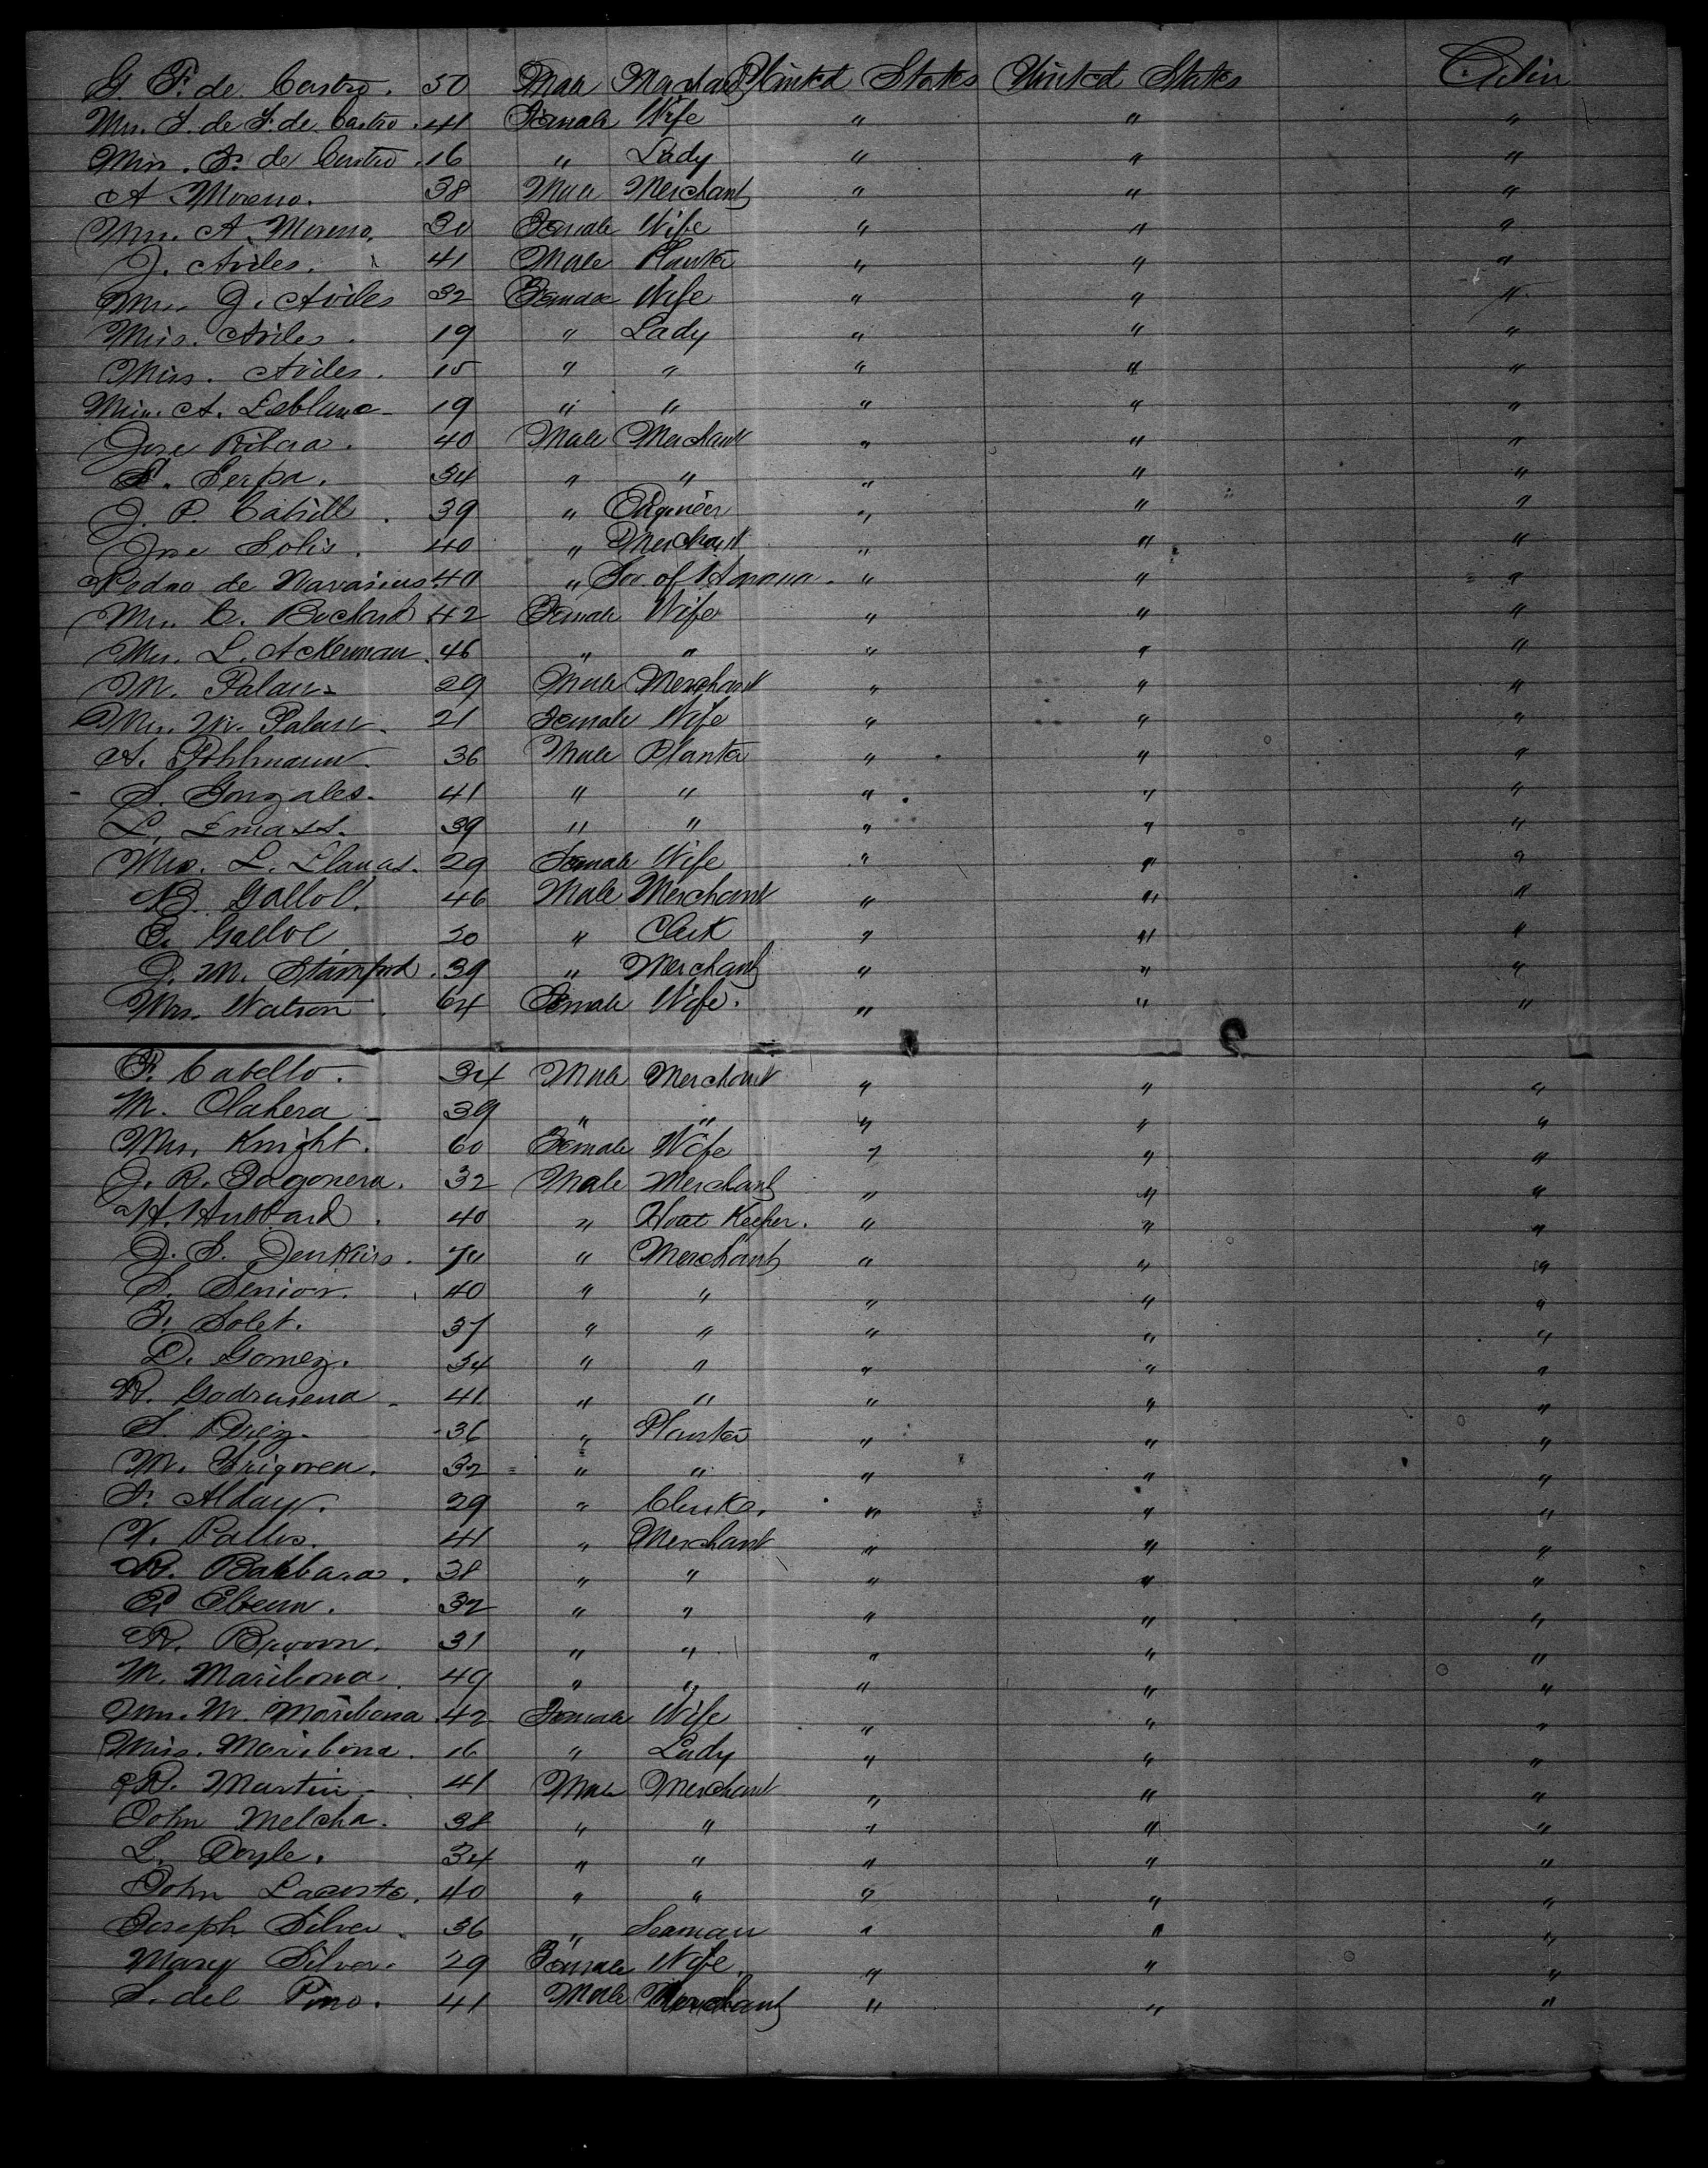 G. F. de Castro. 50 Male Merchant United States United States Cabin
Mrs. F. de F. de Castro. 41 Female Wife " " "
Miss. F. de Castro. 16 " Lady " " "
A Moreno. 38 Male Merchant " " "
Mrs. A Moreno. 30 Female Wife " " "
J. Aviles. 41 Male Planter " " "
Mrs. J. Aviles 32 Female Wife " " "
Miss. Aviles. 19 " Lady " " "
Miss. Aviles. 15 " " " " "
Miss. A. Leblanc 19 " " " " "
Jose Ribera. 40 Male Merchant " " "
S. Serpa. 34 " " " " "
J. P. Cahill. 39 " Engineer " " "
Jose Solis. 40 " Merchant " " "
Pedro de 40 " Gov. of Havana. " " "
Mrs. C. Bochard 42 Female Wife " " "
Mrs. L. Ackerman. 46 " " " " "
M. Palau 29 Male Merchant " " "
Mrs. M. Palau. 21 Female Wife " " "
A. Pohlmann. 36 Male Planter " " "
S. Gonzales. 41 " " " " "
L. 39 " " " " "
Mrs. L. Llanas. 29 Female Wife " " "
B. Gallol. 46 Male Merchant " " "
E. Gallol 20 " Clerk " " "
J. M. Stamford. 39 " Merchant " " "
Mrs. Watson. 64 Female Wife. " " "
F. Cabello. 34 Male Merchant " " "
M. Olahera 39 " " " " "
Mrs. Knight. 60 Female Wife " " "
J. R. 32 Male Merchant " " "
H. Hubbard. 40 " Hotel Keeper. " " "
J. S. Jenkins. 70 " Merchant " " "
S. Senior. 40 " " " " "
F. Solet. 37 " " " " "
D. Gomez. 34 " " " " "
R. 41 " " " " "
S. Perez 36 " Planter " " "
M. 32 " " " " "
F. Alday. 29 " Clerk. " " "
V. 41 " Merchant " " "
R. Barbara. 38 " " " " "
32 " " " " "
R. Broom. 31 " " " " "
M. Maribona. 49 " " " " "
Mrs. M. Maribona 42 Female Wife " " "
Miss. Maribona. 16 " Lady " " "
R. Martin 41 Male Merchant " " "
John Melcha. 38 " " " " "
L. Doyle. 34 " " " " "
John Lacoste. 40 " " " " "
Joseph Silver. 36 " Seaman " " "
Mary Silver. 29 Female Wife. " " "
S. del Pino. 41 Male Merchant " " "